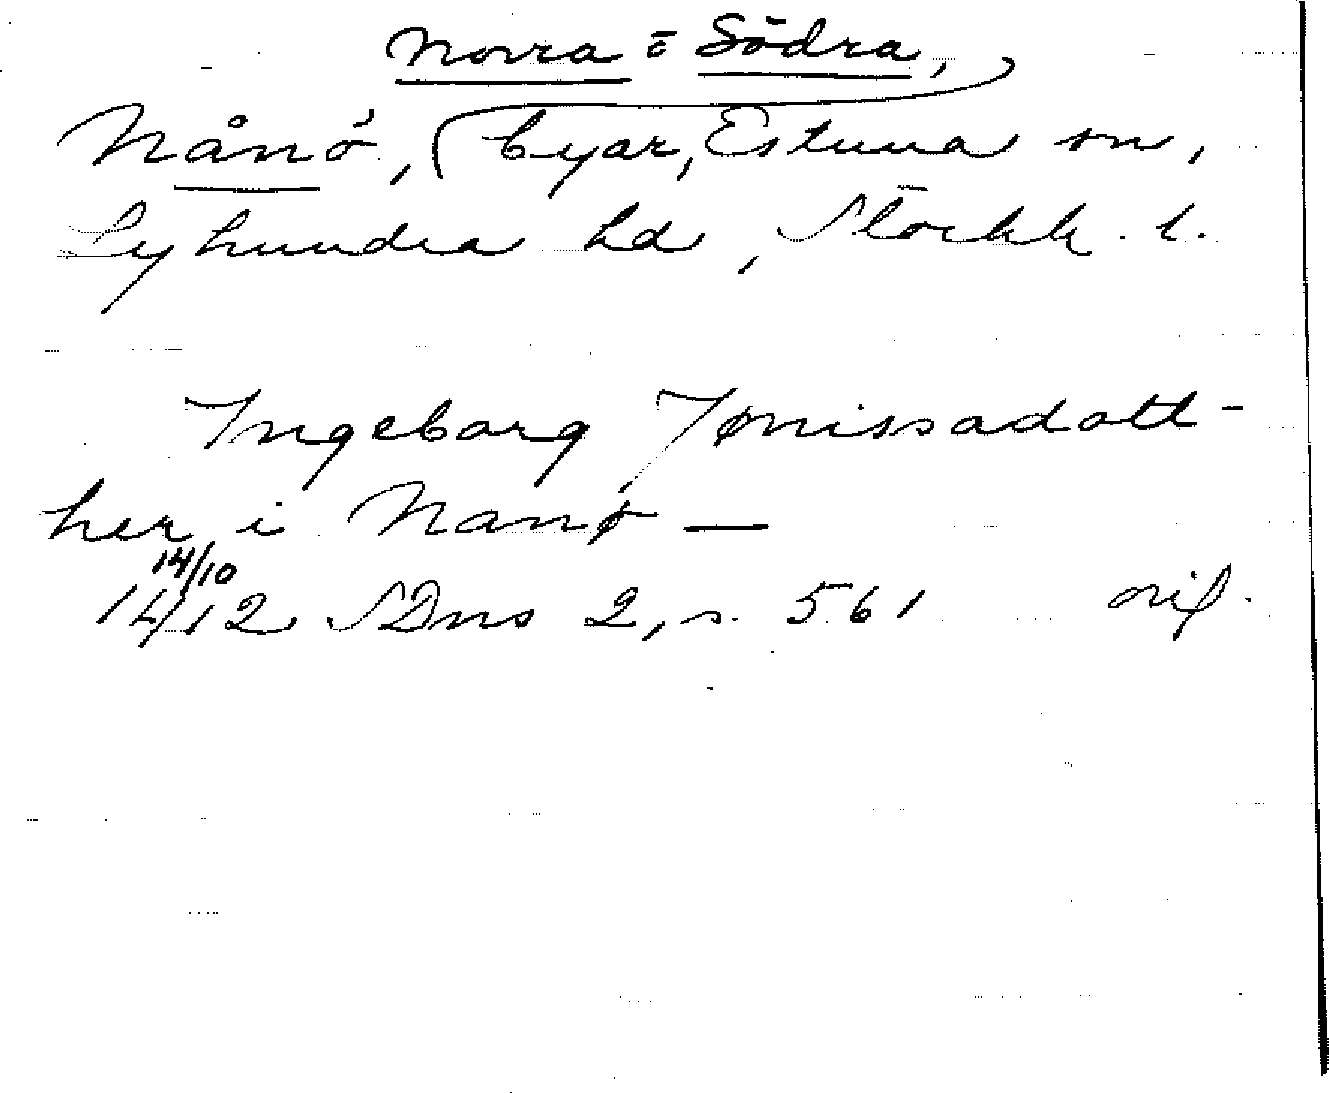 Norra o Södra,
Nånö, (byar, Estuna sn,
Lyhundra hd, Stockh. l.
Ingeborg Jønissadott-
her i Nanø —
14/10
1412 SDns 2, s. 561 orig.